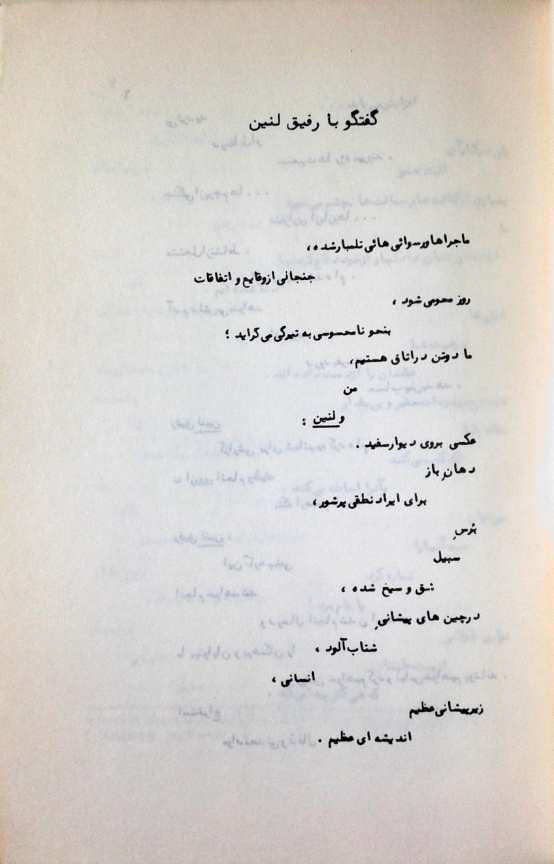 گفتگو با رفیق لنین
ماجراها ورسوائی هائی تلمبارشده،
جنجالی ازوقایع و اتفاقات
روز محومی شود ،
بنحو نامحسوسی به تیرگی می گراید ؛
ما دوتن دراتاقی هستیم،
من
و لنین :
عکسی بروی دیوارسفید .
دهانِ باز
برای ایراد نطقی پرشور،
بُرسِ
سبیل
شق و سیخ شده ،
درچین های پیشانیِ
شتاب آلود ،
انسانی ،
زیرپیشانی عظیم
اندیشه ای عظیم .